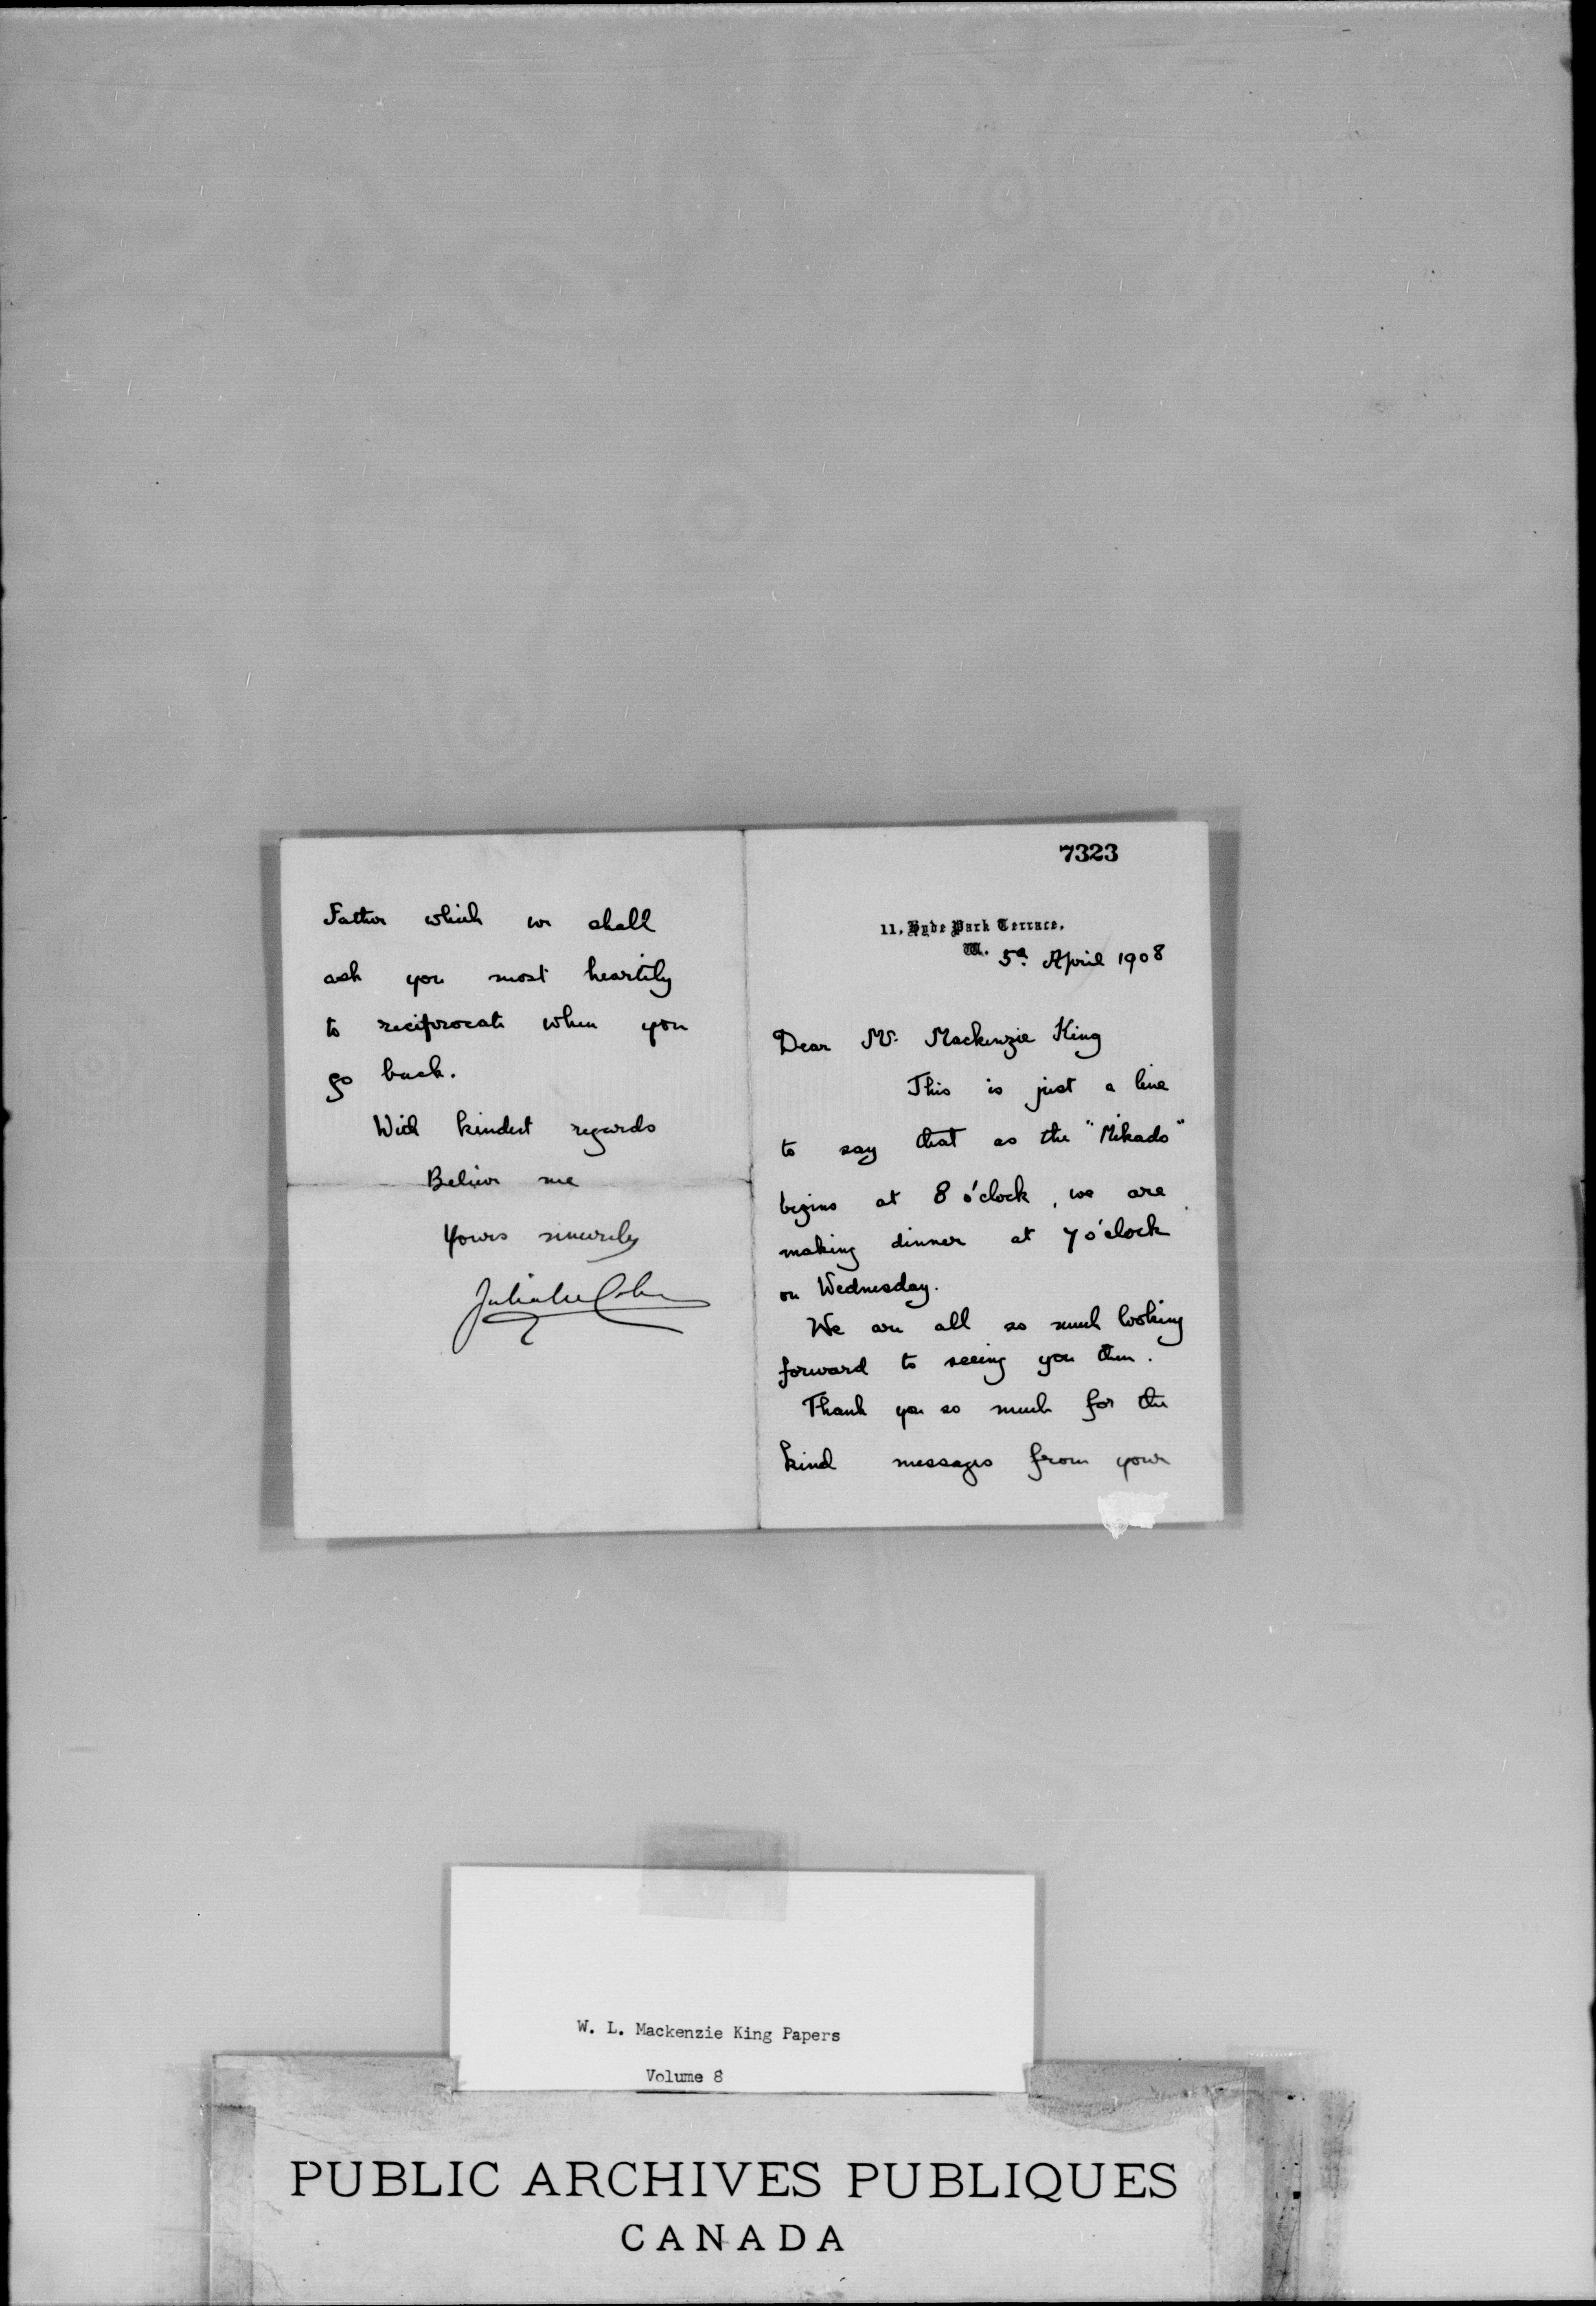 7323
11, Hyde Park Terrace,
W. 5a April 1908
Dear Mr. Mackenzie King
This is just a line
to say that as the "Mikado"
begins at 8 o'clock, we are
making dinner at 7 o'clock
on Wednesday.
We are all so much looking
forward to seeing you then.
Thank you so much for the
kind messages from your
Father which we shall
ask you most heartily
to reciprocate when you
go back.
With kindest regards
Believe me
Yours sincerely
W. L. Mackenzie King Papers
Volume 8
PUBLIC ARCHIVES PUBLIQUES
CANADA